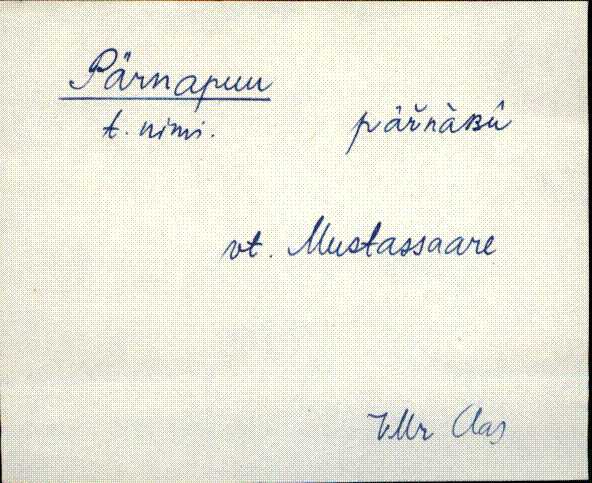 Pärnapuu
t. nimi. pärnàʙû
vt. Mustassaare
VMr